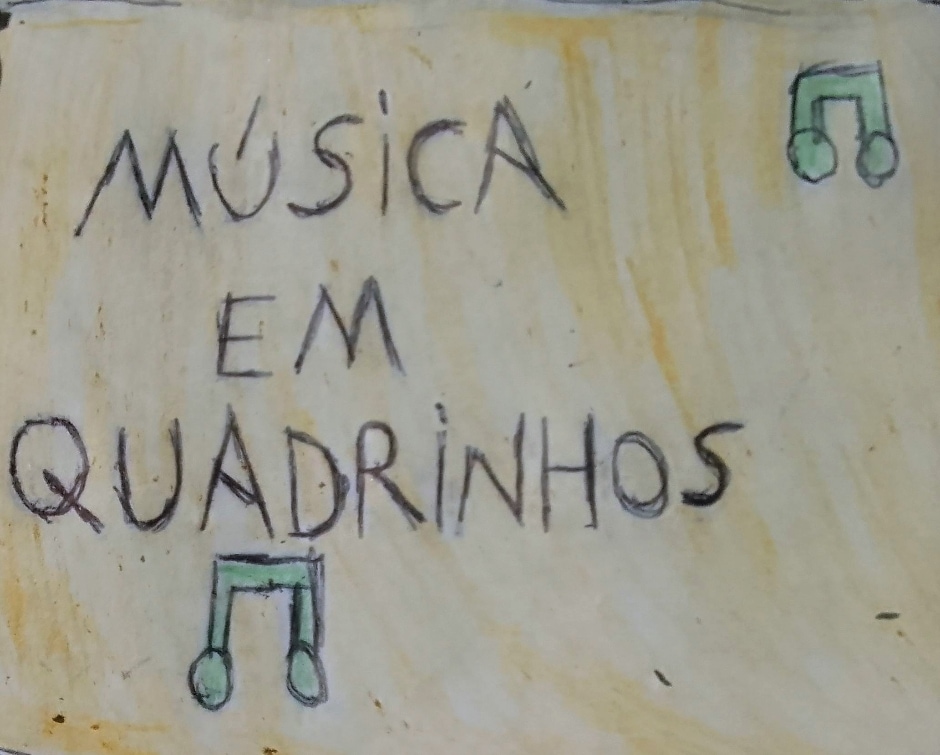 MÚSICA
EM
QUADRINHOS